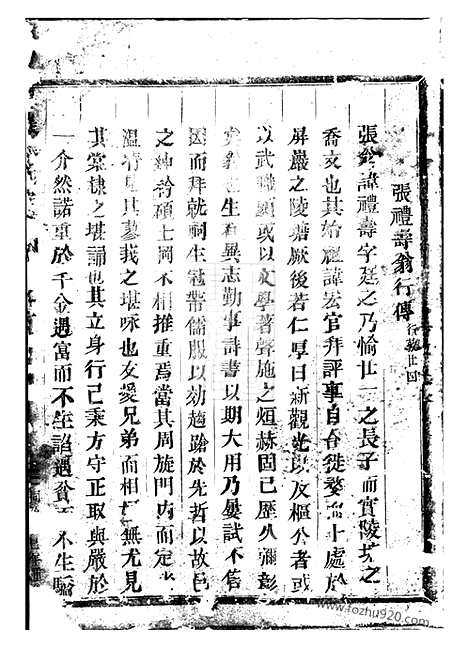 張禮壽翁行傳 行 廿四
張 諱禮壽字廷之乃愉廿一 之長子而實陵坑之
喬支也其始祖諱宏官拜評事自 徙婺 卜處於
屏巖之陵塘厥後若仁厚日新觀光以及樞公者或
以武職顯或以文學著聲施之烜赫固已歷久彌彰
矣 生 異志勤事詩書以期大用乃屢試不售
因而拜就祠生冠帶儒服以効趨蹌於先哲以故邑
之紳衿碩士 不相推重焉當其周旋門內而定
溫凊 其蓼莪之堪咏也友愛兄弟而相 無尤見
其棠棣之堪誦也其立身行己秉方守正取與嚴於
一介然諾重於千金遇富而不生諂遇貧 不生驕
www.fozhu920.com